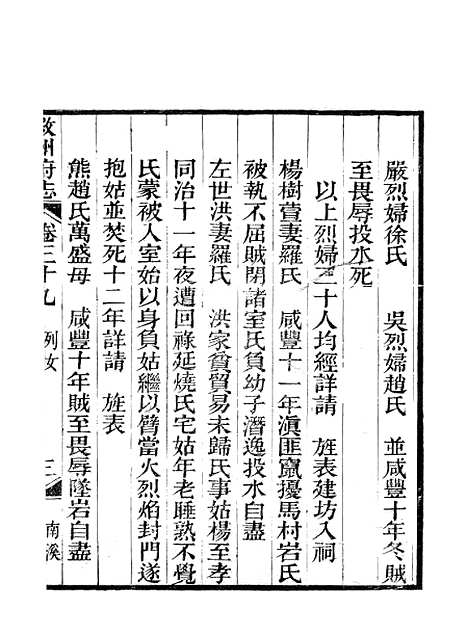 嚴烈婦徐氏　吳烈婦趙氏　並咸豐十年冬賊
至畏辱投水死
以上烈婦二十人均經詳請　旌表建坊入祠
楊樹萱妻羅氏　咸豐十一年滇匪竄擾馬村岩氏
被執不屈賊閉諸室氏負幼子潛逸投水自盡
左世洪妻羅氏　洪家貧貿易未歸氏事姑楊至孝
同治十一年夜遭回祿延燒氏宅姑年老睡熟不覺
氏蒙被入室始以身負姑繼以臂當火烈焰封門遂
抱姑並焚死十二年詳請　旌表
熊趙氏萬盛母　咸豐十年賊至畏辱墜岩自盡
敘州府志　卷三十九　列女　三　南溪